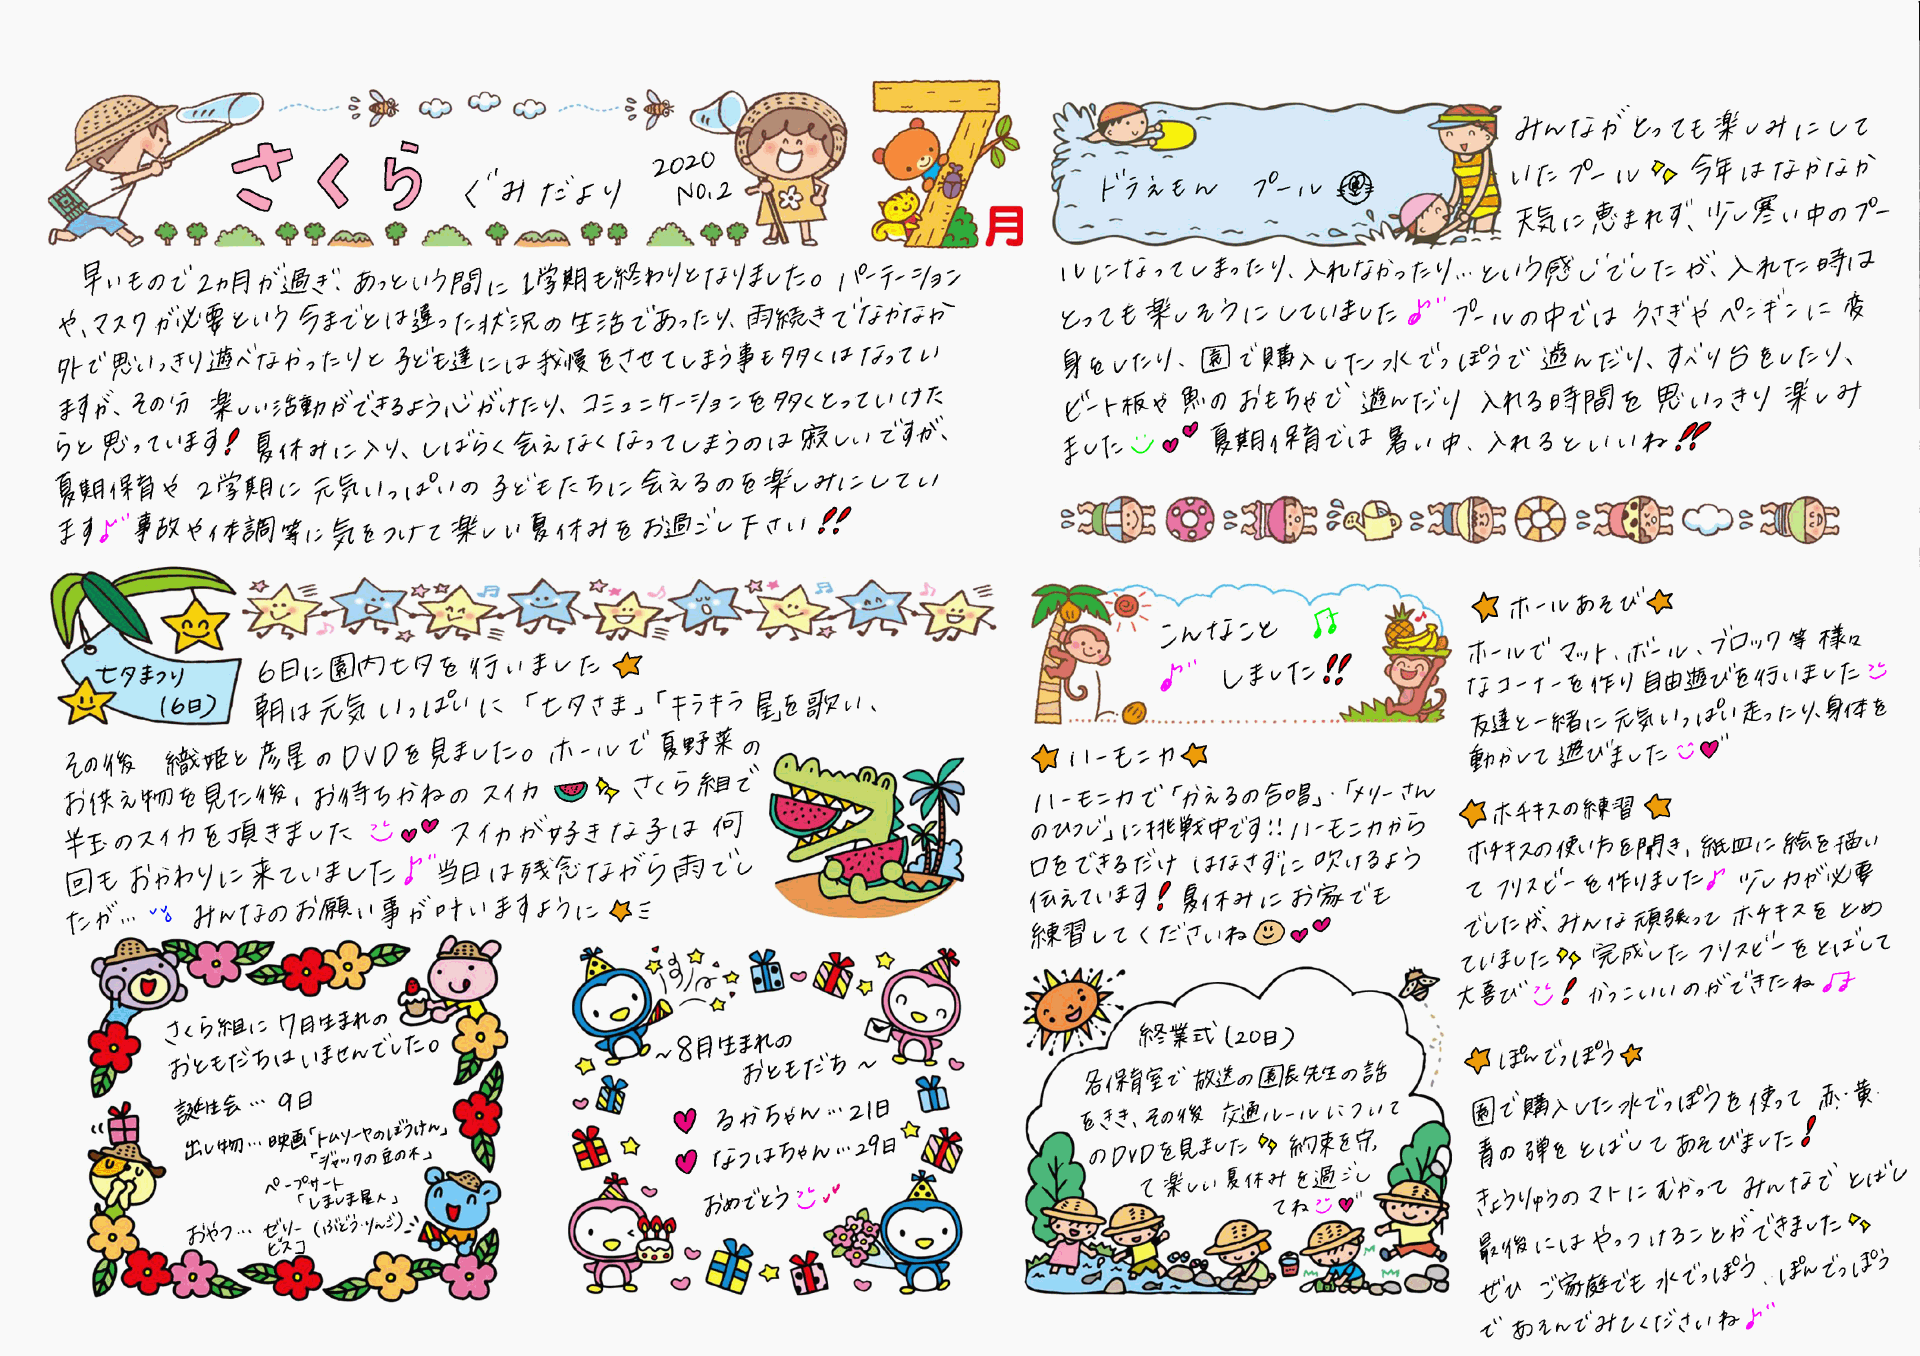 さくら ぐみだより
2020
NO.2
7月
早いもので2ヵ月が過ぎ、あっという間に1学期も終わりとなりました。パーテーション
や、マスクが必要という今までとは違った状況の生活であったり、雨続きでなかなか
外で思いっきり遊べなかったりと子ども達には我慢をさせてしまう事も多くはなってい
ますが、その分 楽しい活動ができるよう心がけたり、コミュニケーションを多くとっていけた
らと思っています!夏休みに入り、しばらく会えなくなってしまうのは寂しいですが、
夏期保育や2学期に元気いっぱいの子どもたちに会えるのを楽しみにしてい
ます♪事故や体調等に気をつけて楽しい夏休みをお過ごし下さい!!
七夕まつり
(6日)
6日に園内七夕を行いました★
朝は元気いっぱいに「七夕さま」「キラキラ星」を歌い、
その後 織姫と彦星のDVDを見ました。ホールで夏野菜の
お供え物を見た後、お待ちかねのスイカ さくら組で
半玉のスイカを頂きました スイカが好きな子は何
回もおかわりに来ていました♪当日は残念ながら雨でし
たが… みんなのお願い事が叶いますように★
さくら組に7月生まれの
おともだちはいませんでした。
誕生会…9日
出し物…映画「トムソーヤのぼうけん」
「ジャックの豆の木」
ペープサート
「しましま屋さん」
おやつ…ゼリー(ぶどう・りんご)
ビスコ
~8月生まれの
おともだち~
るかちゃん…21日
なつはちゃん…29日
おめでとう
ドラえもん プール
みんながとっても楽しみにして
いたプール 今年はなかなか
天気に恵まれず、少し寒い中のプー
ルになってしまったり、入れなかったり…という感じでしたが、入れた時は
とっても楽しそうにしていました♪プールの中ではうさぎやペンギンに変
身をしたり、園で購入した水でっぽうで遊んだり、すべり台をしたり、
ビート板や魚のおもちゃで遊んだり 入れる時間を思いっきり楽しみ
ました 夏期保育では暑い中、入れるといいね!!
こんなこと
しました!!
★ハーモニカ★
ハーモニカで「かえるの合唱」・「メリーさん
のひつじ」に挑戦中です!!ハーモニカから
口をできるだけ はなさずに吹けるよう
伝えています!夏休みにお家でも
練習してくださいね
終業式(20日)
各保育室で放送の園長先生の話
をきき、その後 交通ルールについて
のDVDを見ました 約束を守っ
て楽しい夏休みを過ごし
てね
★ホールあそび★
ホールでマット、ボール、ブロック等様々
なコーナーを作り自由遊びを行いました
友達と一緒に元気いっぱい走ったり、身体を
動かして遊びました
★ホチキスの練習★
ホチキスの使い方を聞き、紙皿に絵を描い
てフリスビーを作りました♪少し力が必要
でしたが、みんな頑張ってホチキスをとめ
ていました 完成したフリスビーをとばして
大喜び!かっこいいのができたね♫
★ぽんでっぽう★
園で購入した水でっぽうを使って赤・黄・
青の弾をとばしてあそびました!
きょうりゅうのマトにむかってみんなでとばし
最後にはやっつけることができました
ぜひ ご家庭でも水でっぽう、ぽんでっぽう
であそんでみてくださいね♪